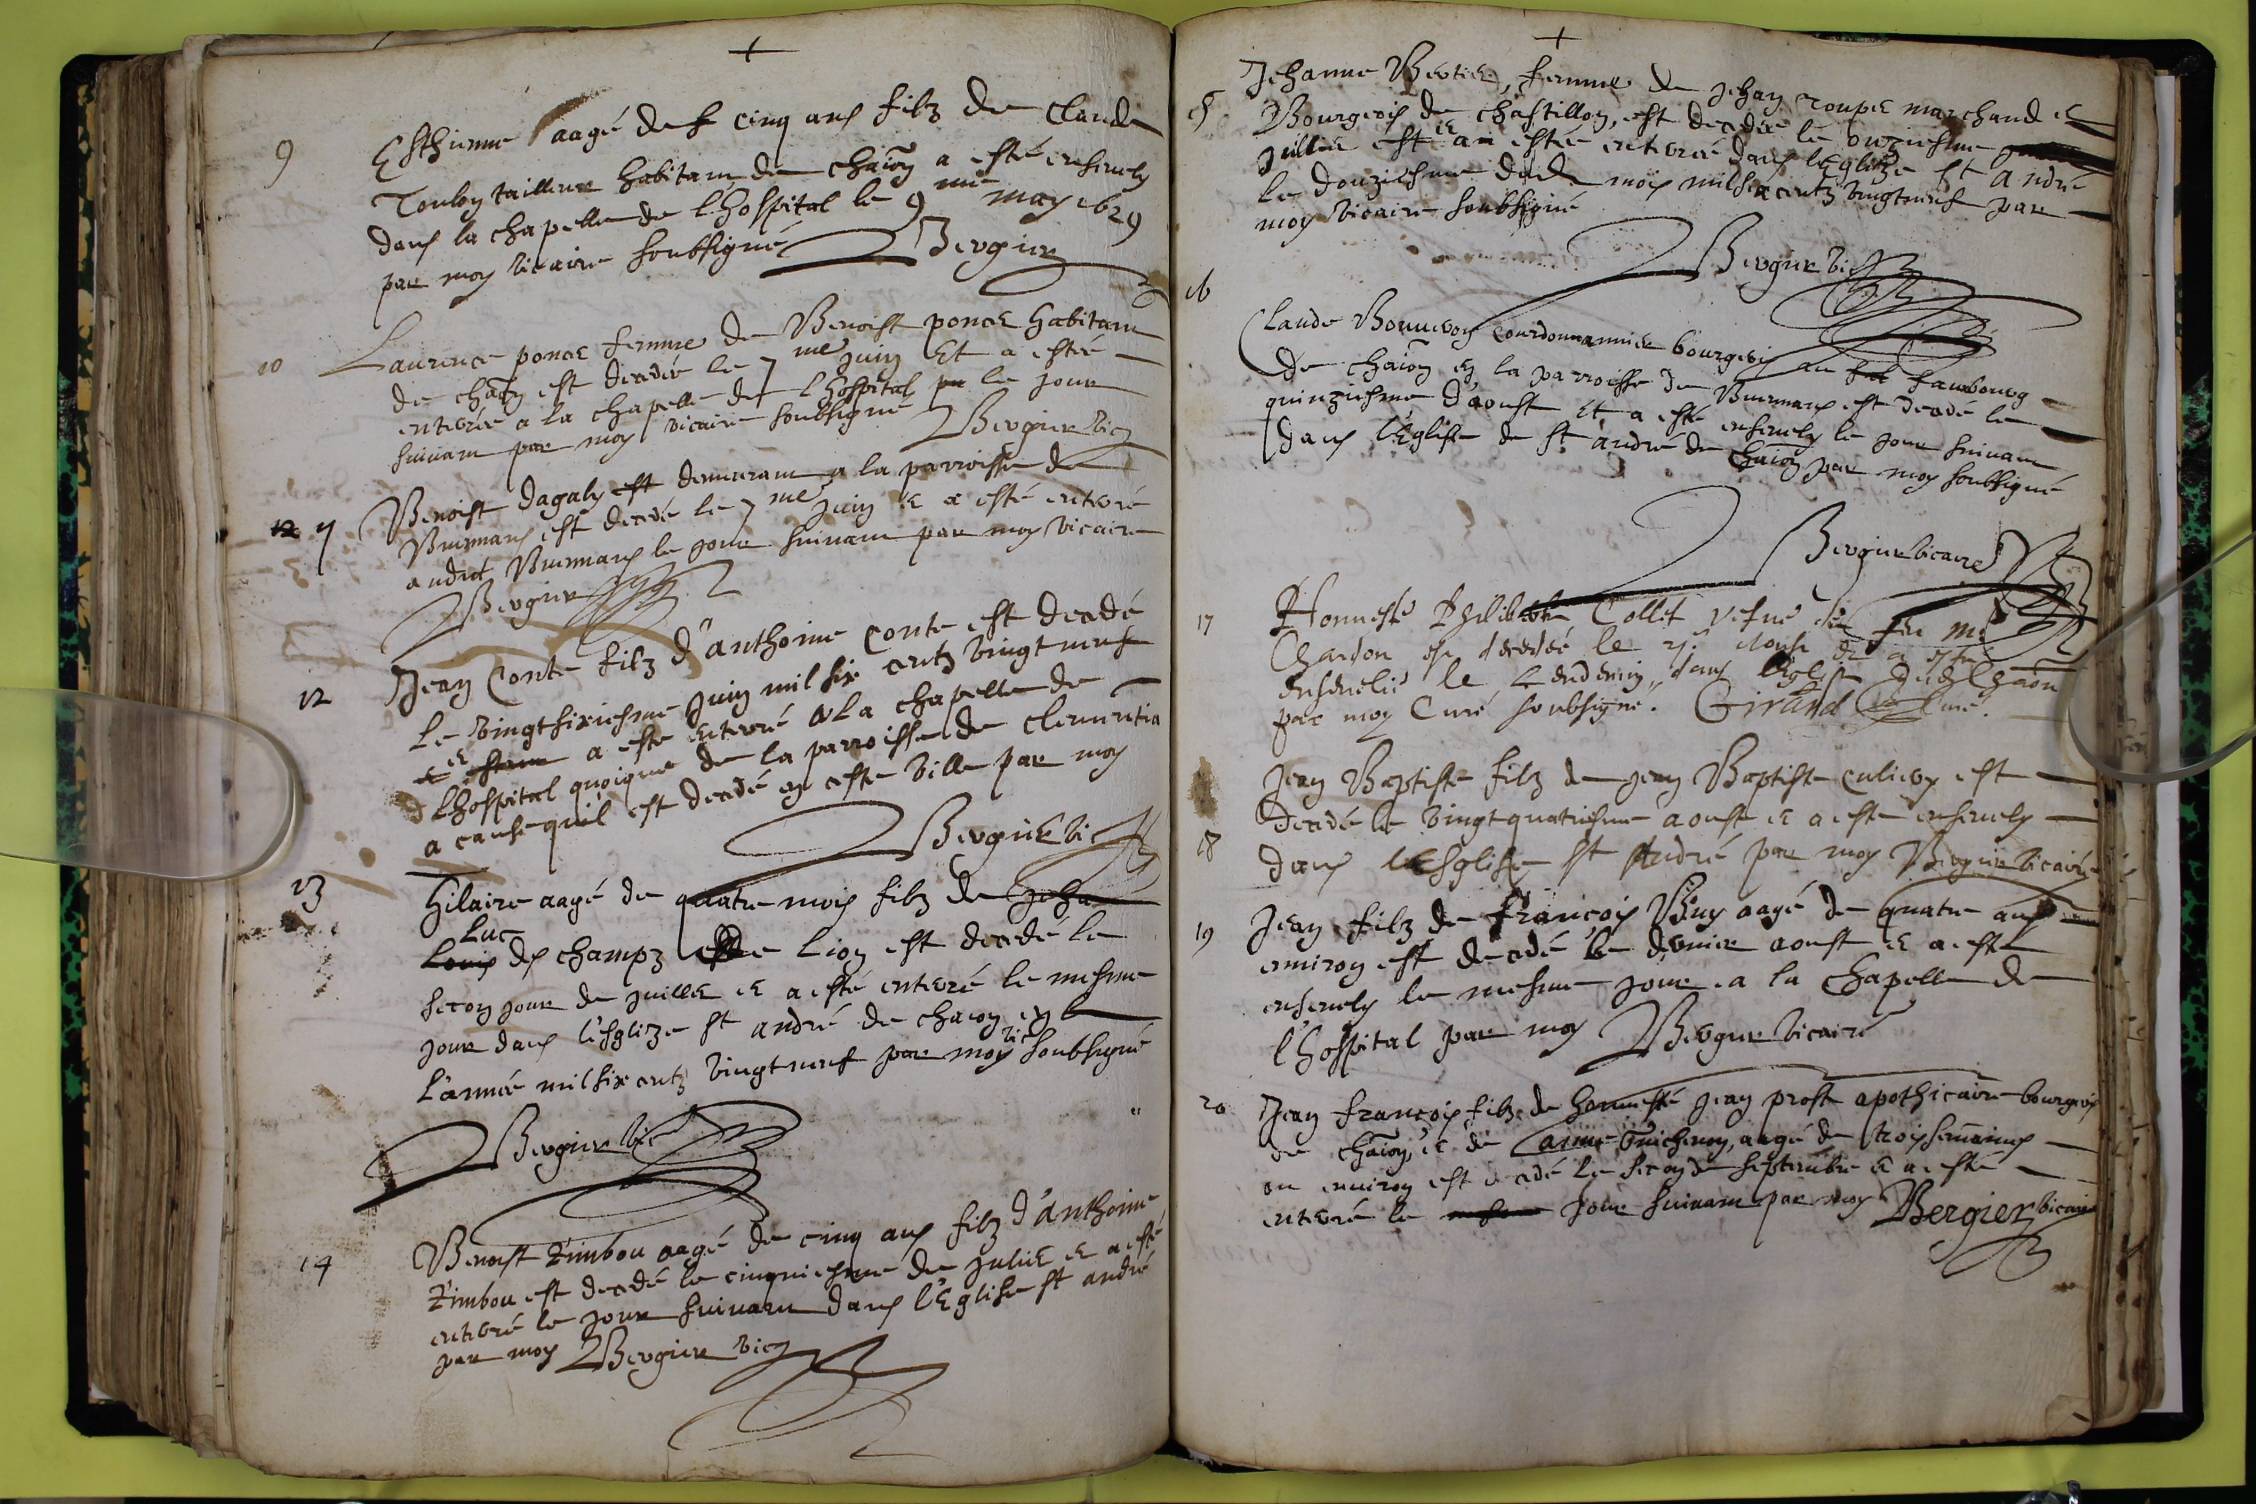 +
9
Esthienne aagé de cinq ans filz de Claude
Toulon tailleur habitant de chaon a esté ensevely
dans la chapelle de lhospital le 9 me may 1629
par moy vicaire soubsigné Bergier
10
Laurence poncet femme de Benoist poncet habitant
de chaon est decedée le 7 me juin Et a estée
enterrée a la chapelle de lhospital le jour
suivant par moy vicaire soubsigné Bergier vic
11
Benoist dagaly demeurant a la parroisse de
Buenans est decedé le 7 me juin et a esté enterré
audit Buenans le jour suivant par moy vicaire
Bergier
12
Jean Conte filz d'anthoine Conte est decedé
le vingtsixiesme juin mil six centz vingt neuf
et a esté enterré a La chapelle de
Lhospital quoique de la parroisse de clementia
a cause quil est decedé en ceste ville par moy
Bergier vic
13
Hilaire aagé de quatre mois filz de
Luc
des champz de Lion est decedé le
secon jour de juillet et a esté enterré le mesme
jour dans l'esglize st andré de chaon en
L'année mil six centz vingt neuf par moy vic soubsigné
Bergier vic
14
Benoist Timbou aagé de cinq ans filz d'anthoine
Timbou est decedé le cinquiesme de juliet et a esté
enterré le jour suivant dans l'Eglise st andré
par moy Bergier vic
+
Jehanne femme de jehan marchand et
15
Bourgeois de chastillon, est decedée le onziesme
juillet et a estée enterrée dans l'Eglize st André
le douziesme dudit mois mil six centz vingtneuf par
moy vicaire soubsigné
Bergier vic
16
Claude Bonnevoy courdonnannier bourgeois au faubourg
de chaon en la parroisse de Buenans est decedé le
quinziesme d'aoust Et a esté ensevely le jour suivant
dans l'Eglise de st andré de chaon par moy soubsigné
Bergier vicaire
17
Honneste Philiberte Collet vefve de feu
Chardon est decedée le aoust et a esté
ensevelie le Lendemin dans leglise dudt chaon
par moy Curé soubsigné. Girard Curé.
18
Jean Baptiste filz de jean Baptiste est
decedé le vingtquatriesme aoust et a esté ensevely
dans l'Esglise st André par moy Bergier vicaire
19
Jean filz de françois Buy aagé de quatre ans
environ est decedé le dernier aoust et a esté
ensevely le mesme jour a la chapelle de
l'hospital par moy Bergier vicaire
20
Jean françois filz de honnesté jean prost apothicaire bourgeois
de chaon, et de anne Guichenon, aagé de trois semaines
ou environ est decedé le second septembre et a esté
enterré le jour suivant par moy Bergier vicaire